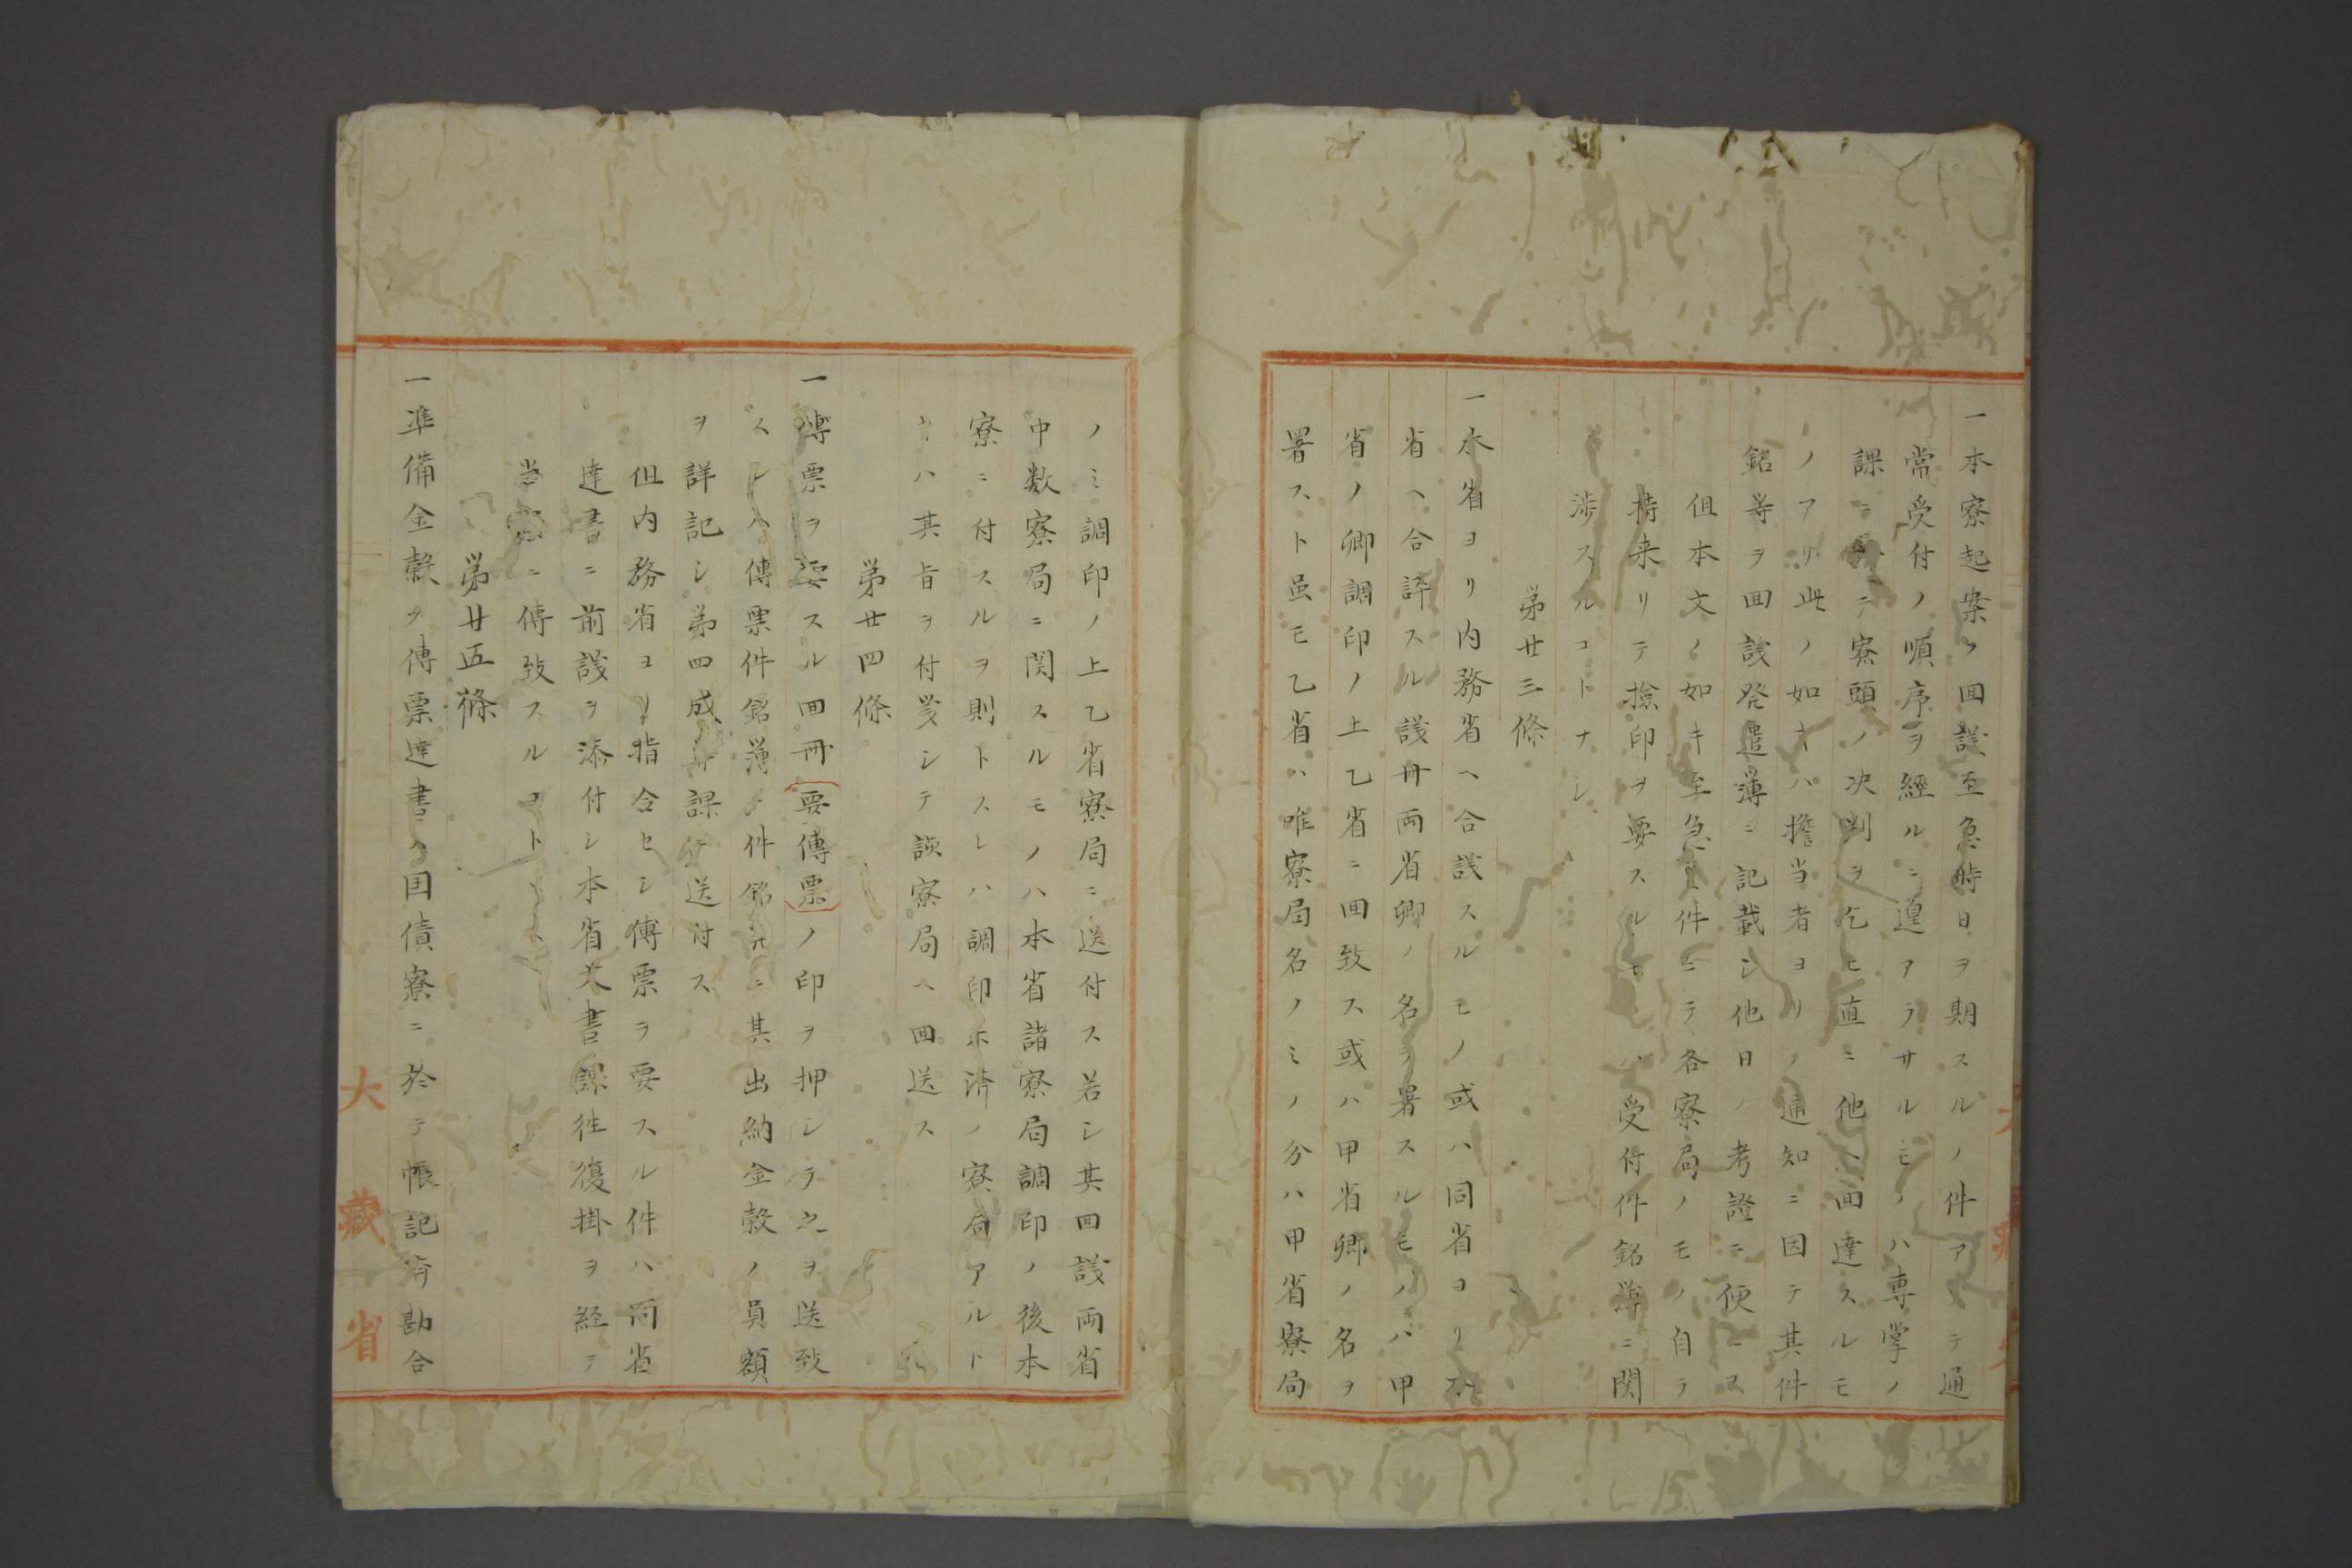 一本寮起案ノ回議至急時日ヲ期スルノ件アリテ通
常受付ノ順序ヲ經ルニ遑アラサルモノハ専掌ノ
課ニテ寮頭ノ決判ヲ乞ヒ直ニ他ヘ回達スルモ
ノアリ此ノ如キハ擔当者ヨリノ通知ニ因テ其件
銘等ヲ回議発遣簿ニ記載シ他日ノ考證ニ便ニス
但本文ノ如キ至急ノ件ニテ各寮局ノモノ自ラ
持来リテ撿印ヲ要スルモ受付件銘簿ニ関
渉スルコトナシ
第廿三條
一本省ヨリ内務省ヘ合議スルモノ或ハ同省ヨリ本
省ヘ合評スル議冊両省卿ノ名ヲ署スルモノハ甲
省ノ卿調印ノ上乙省ニ回致ス或ハ甲省卿ノ名ヲ
署スト虽モ乙省ハ唯寮局名ノミノ分ハ甲省寮局
ノミ調印ノ上乙省寮局ニ送付ス若シ其回議両省
中数寮局ニ関スルモノハ本省諸寮局調印ノ後本
寮ニ付スルヲ則トスレハ調印不濟ノ寮局アルト
キハ其旨ヲ付箋シテ該寮局ヘ回送ス
第廿四條
一傳票ヲ要スル回冊(要傳票)ノ印ヲ押シテ之ヲ送致
スレハ傳票件銘簿ノ件銘ニ其出納金穀ノ員額
ヲ詳記シ第四成課ニ送付ス
但内務省ヨリ指令セシ傳票ヲ要スル件ハ同省
達書ニ前議ヲ添付シ本省文書課往復掛ヲ経テ
当寮ニ傳致スルコト
第廿五條
一準備金穀ノ傳票達書ハ国債寮ニ於テ帳記済勘合
大藏省